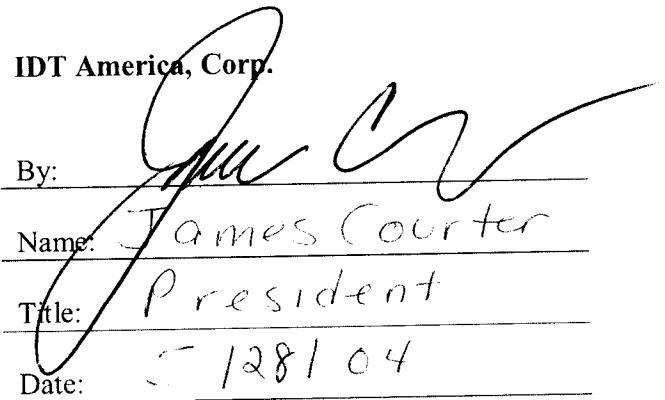 IDT America, Corp.
By:
Name: James Courter
Title: President
Date: 5/28/04